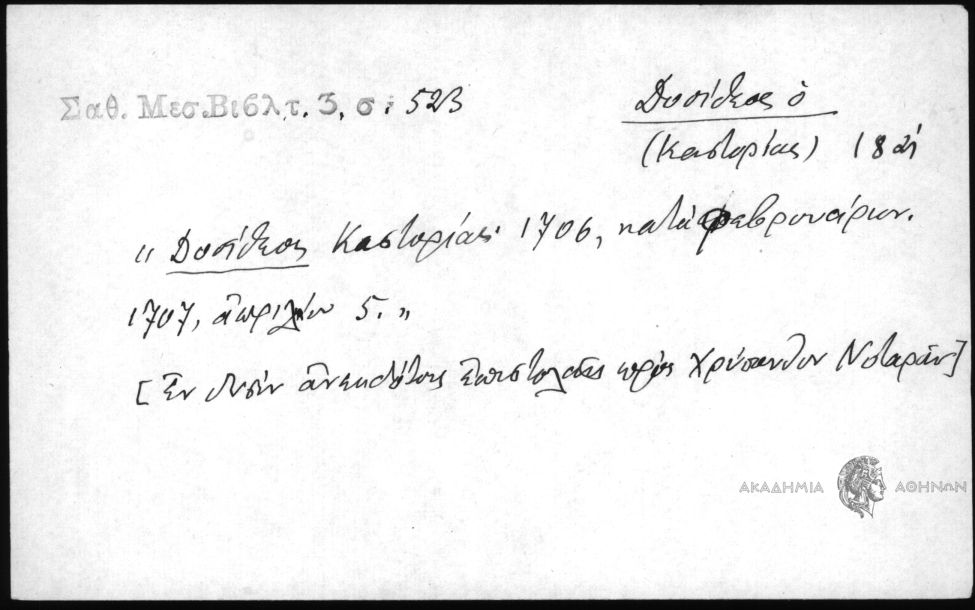 Σαθ. Μεσ. Βιβλ τ. 3, σ. 523
Δοσίθεος ὁ
(Καστορίας) 18
" Δοσίθεος Καστορίας· 1706, κατὰ φεβρουάριον.
1707, ἀπριλίου 5. "
[Ἐν δυσὶν ἀνεκδότοις ἐπιστολαῖς πρὸς Χρύσανθον Νοταρᾶν]
ΑΚΑΔΗΜΙΑ ΑΘΗΝΩΝ